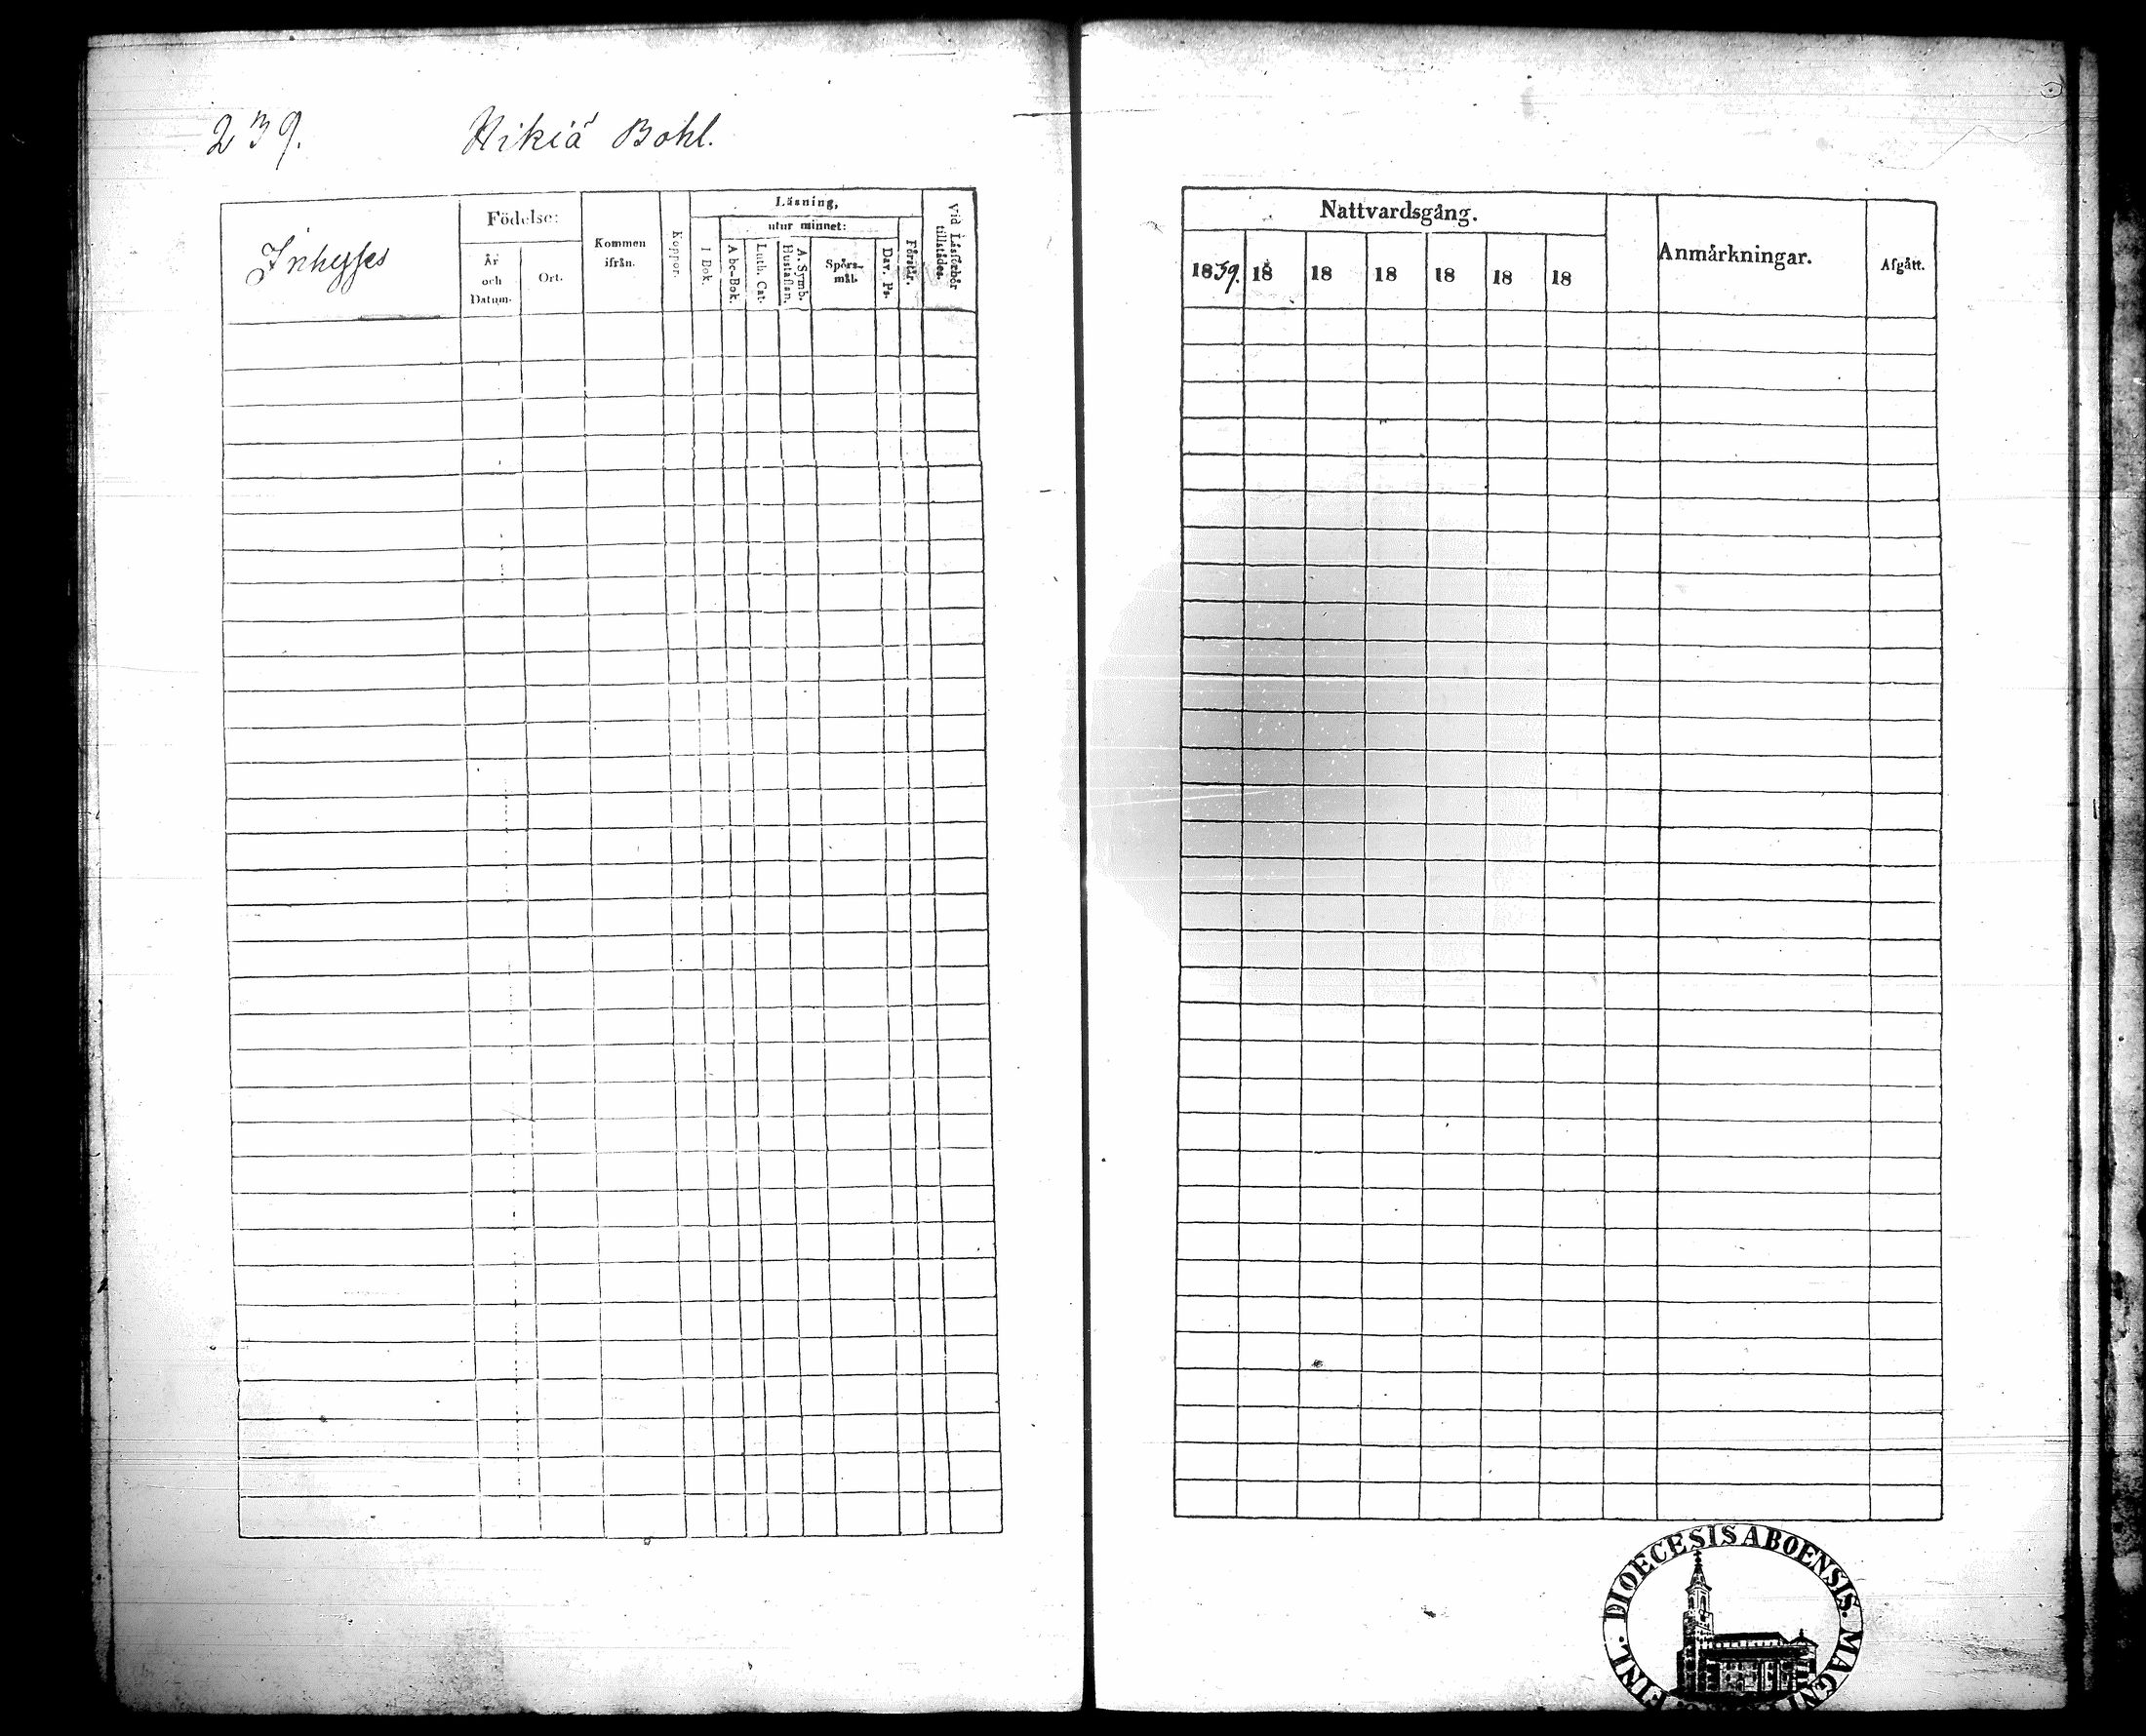 239. Hikiä Bohl.
Inhyses
Födelse:
År
och
Datum.
Ort.
Kommen
ifrån.
Koppor.
Läsning,
utur minnet:
I Bok.
Abc-Bok.
Luth. Cat.
A. Symb.
Hustaflan.
Spörs-
mål.
Dav. Ps.
Förstår.
Vid Läsförhör
tillstädes.
Nattvardsgång.
1839. 18 18 18 18 18 18
Anmärkningar.
Afgått.
FINL. DIOECESIS ABOENSIS. MAGNI